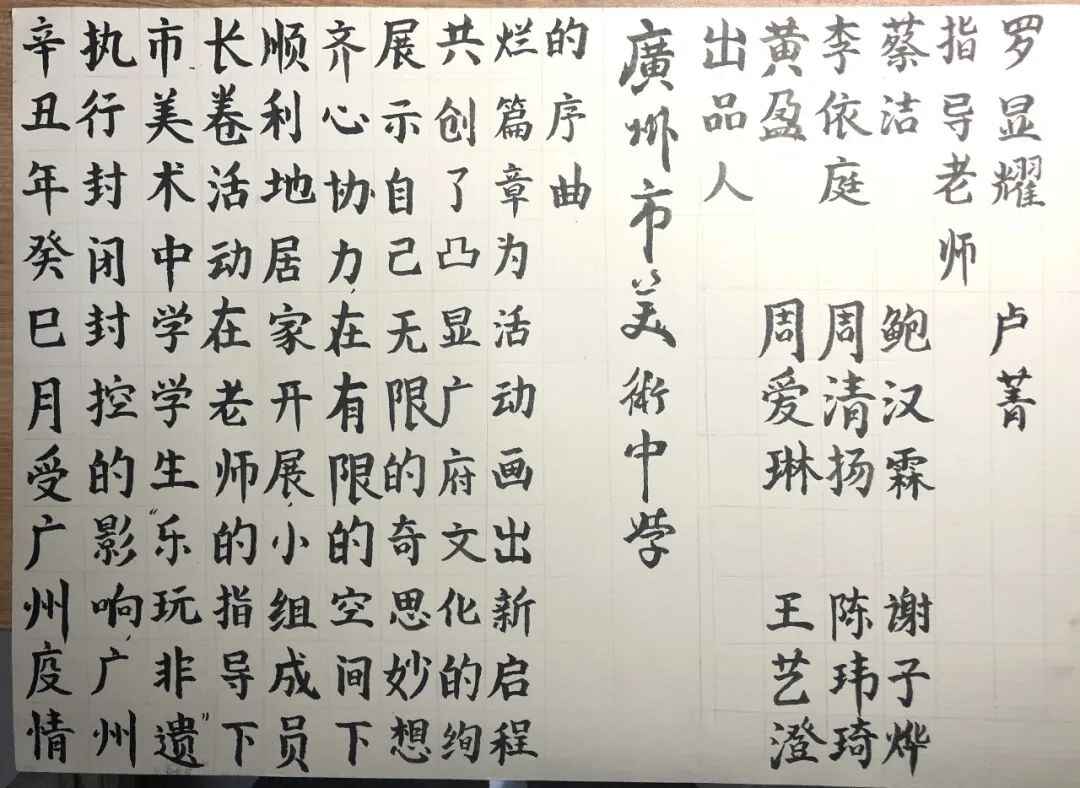 辛丑年癸巳月受广州疫情
执行封闭封控的影响,广州
市美术中学学生“乐玩非遗”
长卷活动在老师的指导下
顺利地居家开展,小组成员
齐心协力,在有限的空间下
展示自己无限的奇思妙想
共创了凸显广府文化的绚
烂篇章为活动画出新启程
的序曲
廣州市美術中学
出品人
黄盈 周爱琳 王艺澄
李依庭 周清扬 陈玮琦
蔡洁 鲍汉霖 谢子烨
指导老师
罗显耀 卢菁